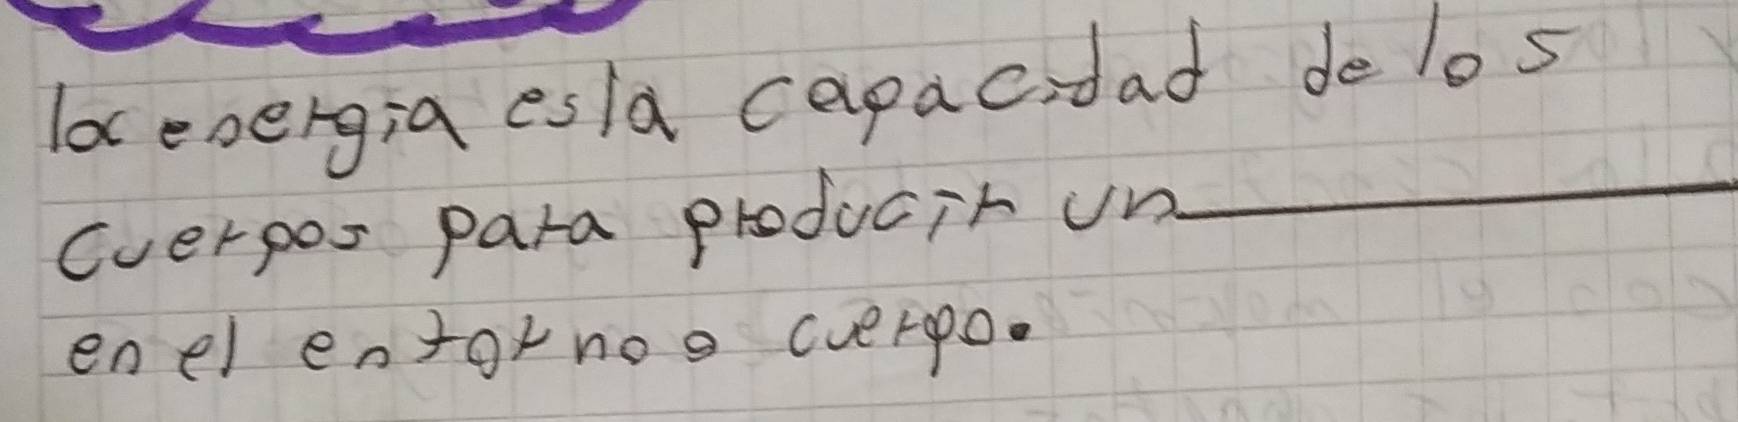 la energia es la capacidad de los
cuerpos para producir un
en el entorno o cuerpo.